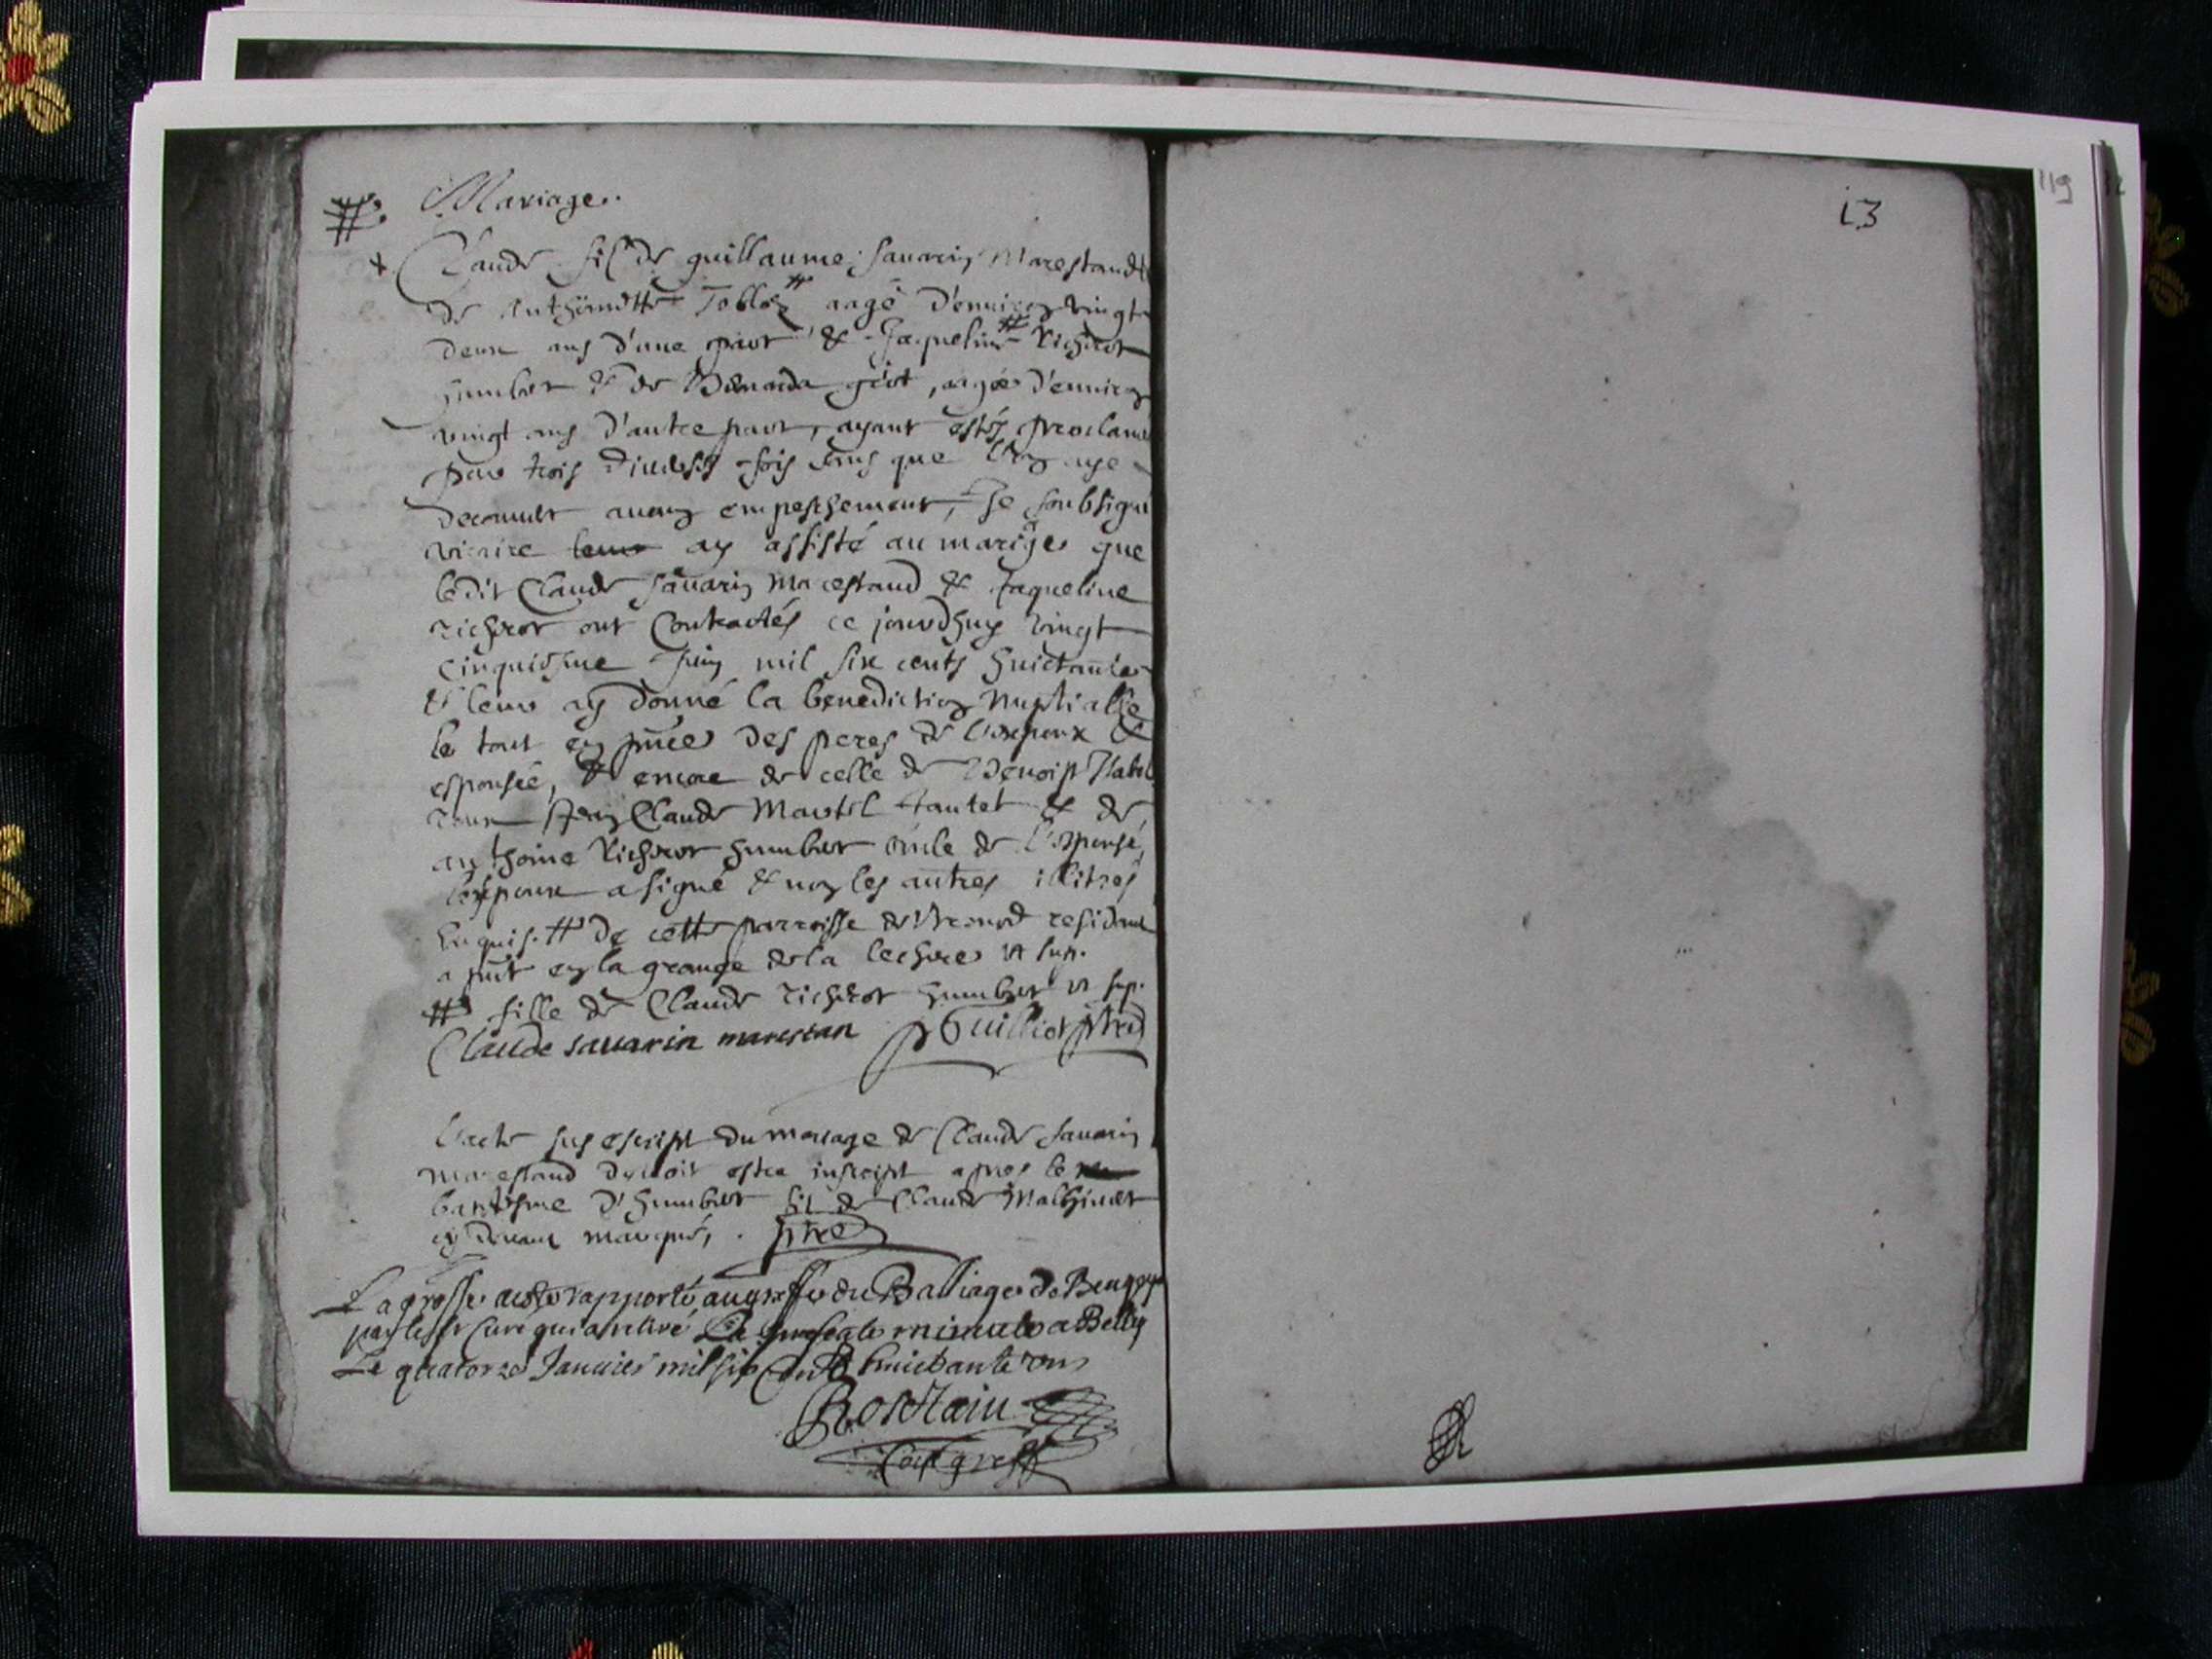 # Mariage.
+ Claude fils de guillaume Sauarin Marestand &
de Anthoinette # aagé d'enuiron vingt
deux ans d'une part & Jaqueline # Richerot
humbert & de Bernarda aagée d'enuiron
vingt ans d'autre part, ayant estés proclamé
par trois fois sans que l'on aye
decouuert aucun empeschement, Je soubsigné
vicaire ay assisté au mariage que
ledit Claude Sauarin Marestand & Jaqueline
richerot ont Contractés ce jourdhuy vingt
cinquiesme Juin mil six cents huictante
& leur ay donné la benediction Nuptialle
le tout en pnce des peres de l'espoux &
espousée, & encore de celle de Benoist
Jean Claude Martel tautet & de
anthoine Richerot humbert oncle de l'espousé,
l'espoux a signé & non les autres illitrés
enquis. # de cette parroisse de residant
a pnt en la grange de la lechere vt sup.
# fille de Claude richerot humbert vt sup.
Claude sauarin marestan Guilliot ptre
L'acte sus escript du mariage de Claude Sauarin
marestand deuoit estre inscript apres le
baptesme d'humbert fils de Claude
cy deuant marqué, . ptre
La grosse a esté rapporté au greffe du Balliage de Beugey
par le Sr Curé qui a retiré la minute a Belley
Le quatorze Januier mil six Cent huictante vn
Rostain
greff
13
119